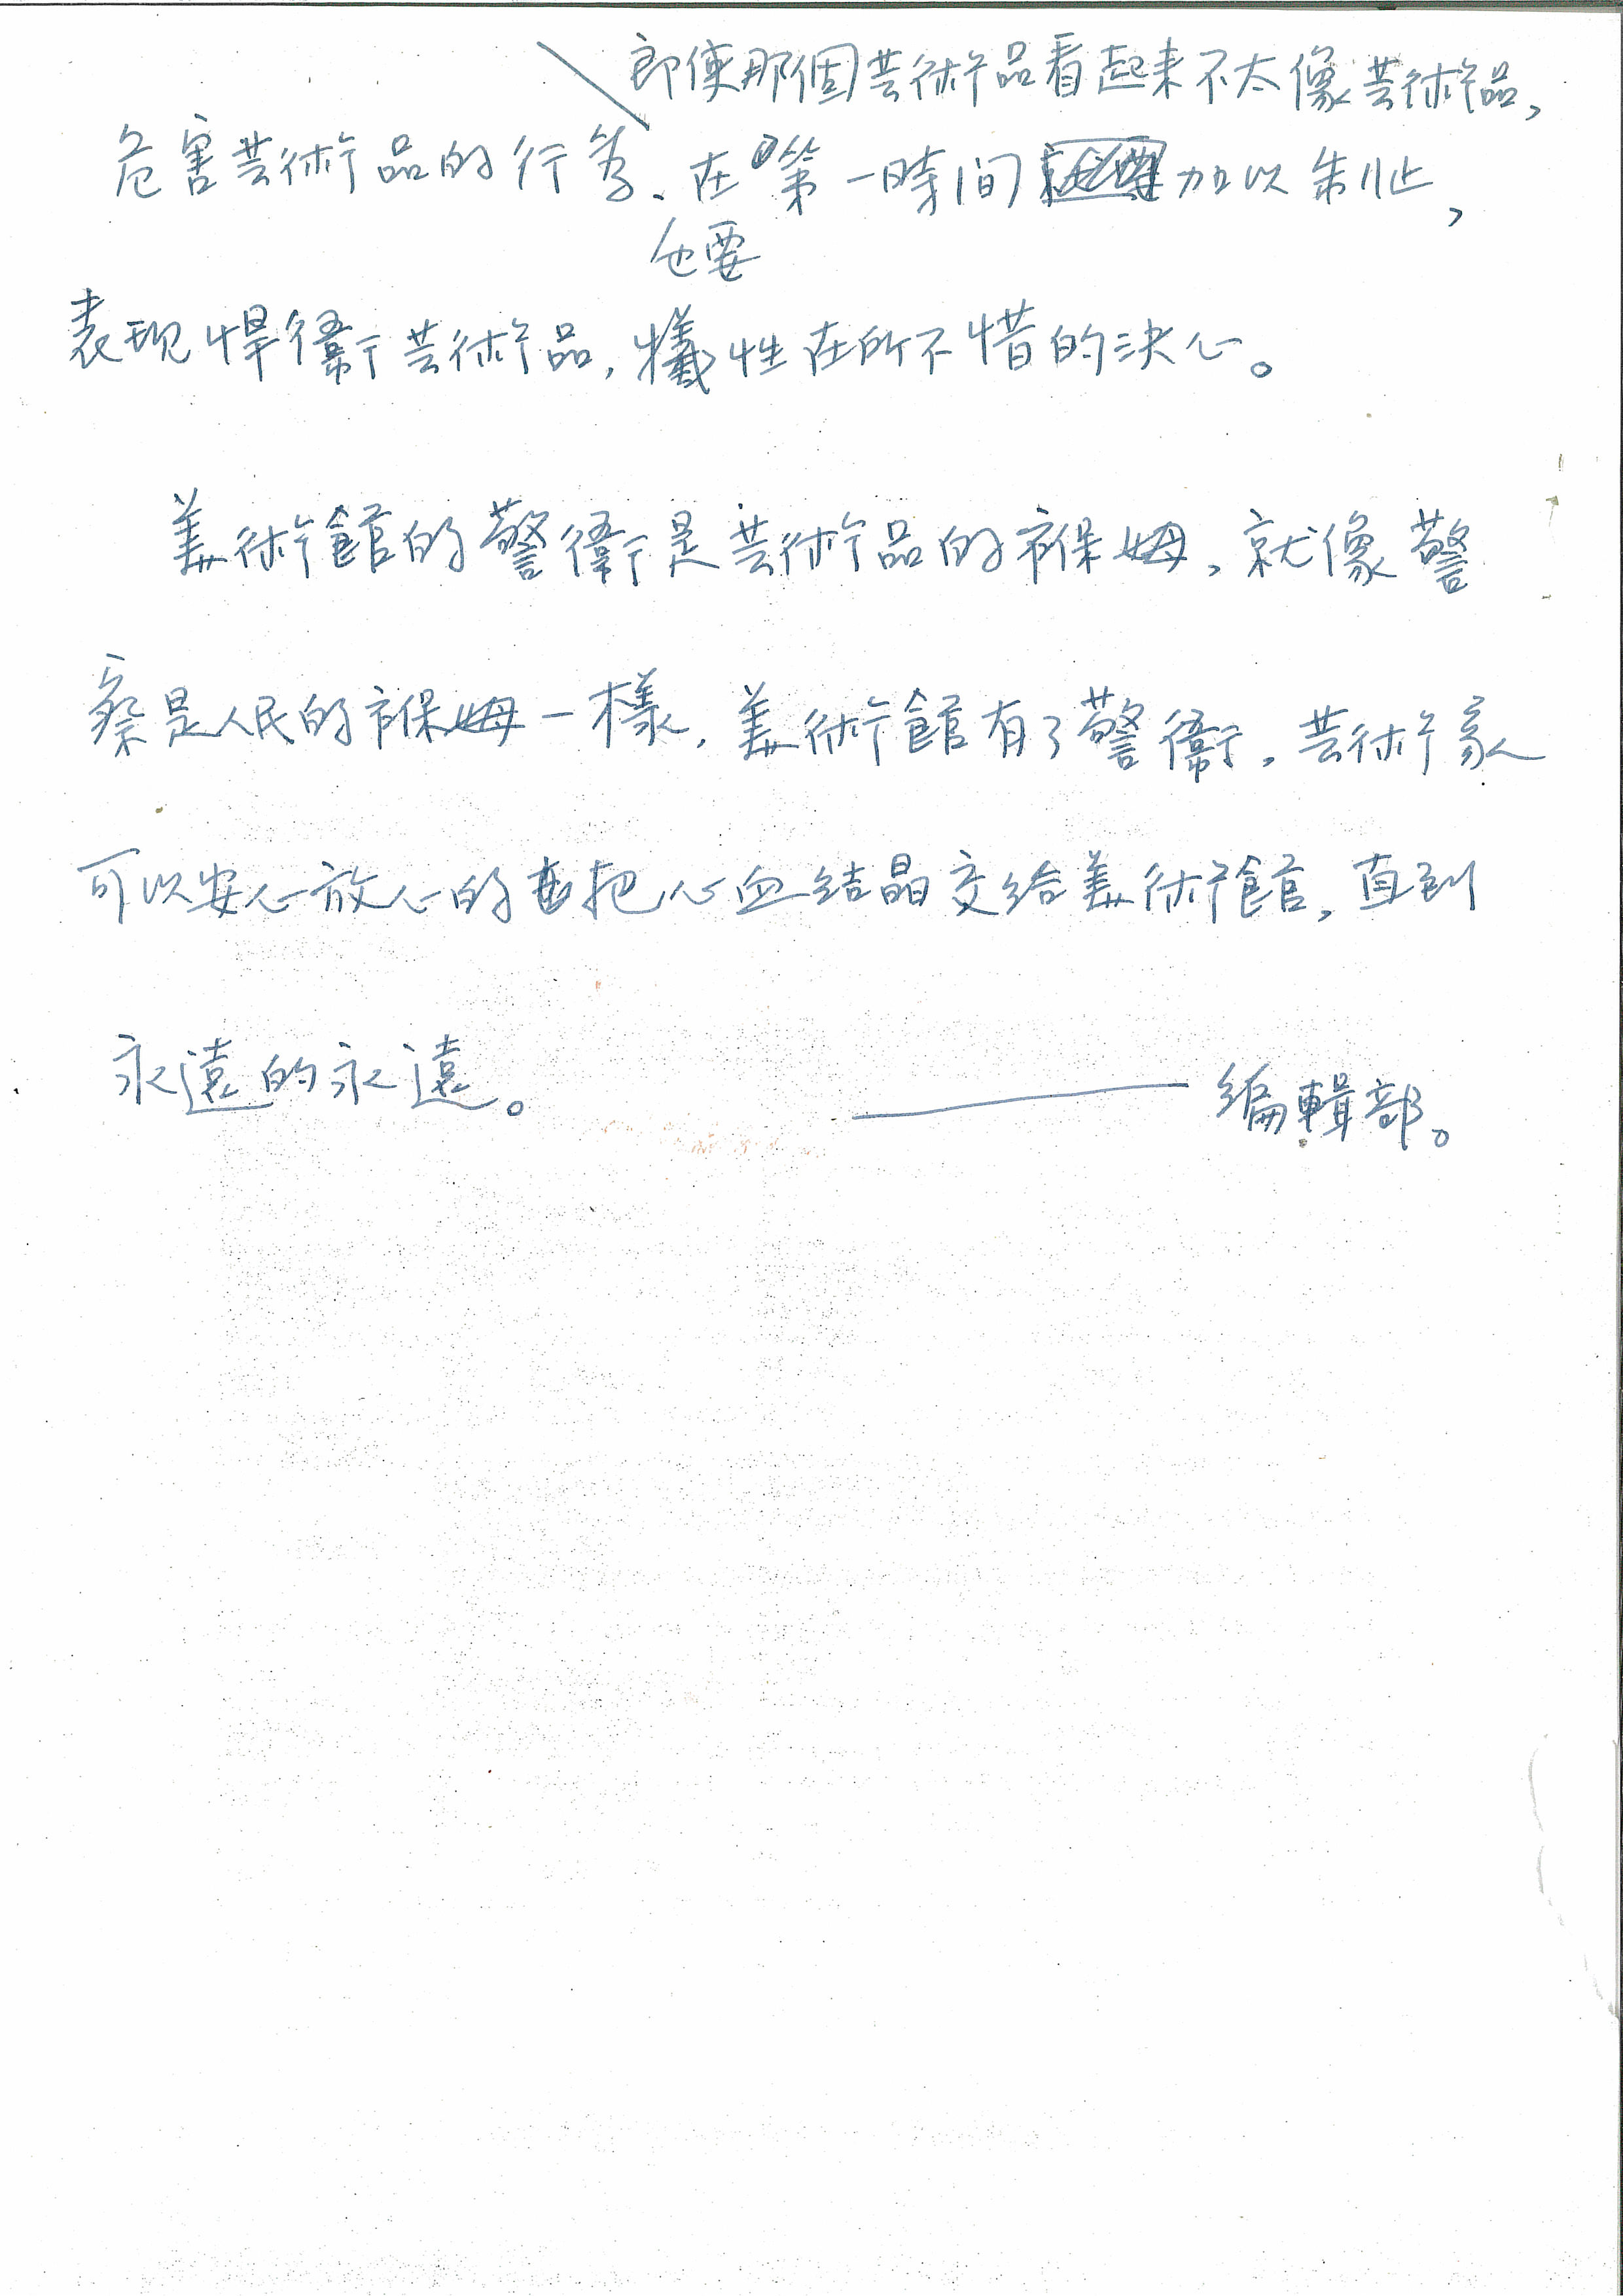 即使那個芸術品看起来不太像芸術品,
危害芸術品的行為、在第一時間加以制止,
也要
表現悍衛芸術品,犧牲在所不惜的決心。
美術館的警衛是芸術品的褓姆,就像警
察是人民的褓姆一樣,美術館有了警衛,芸術家
可以安心放心的把心血結晶交給美術館,直到
永遠的永遠。 ——編輯部。